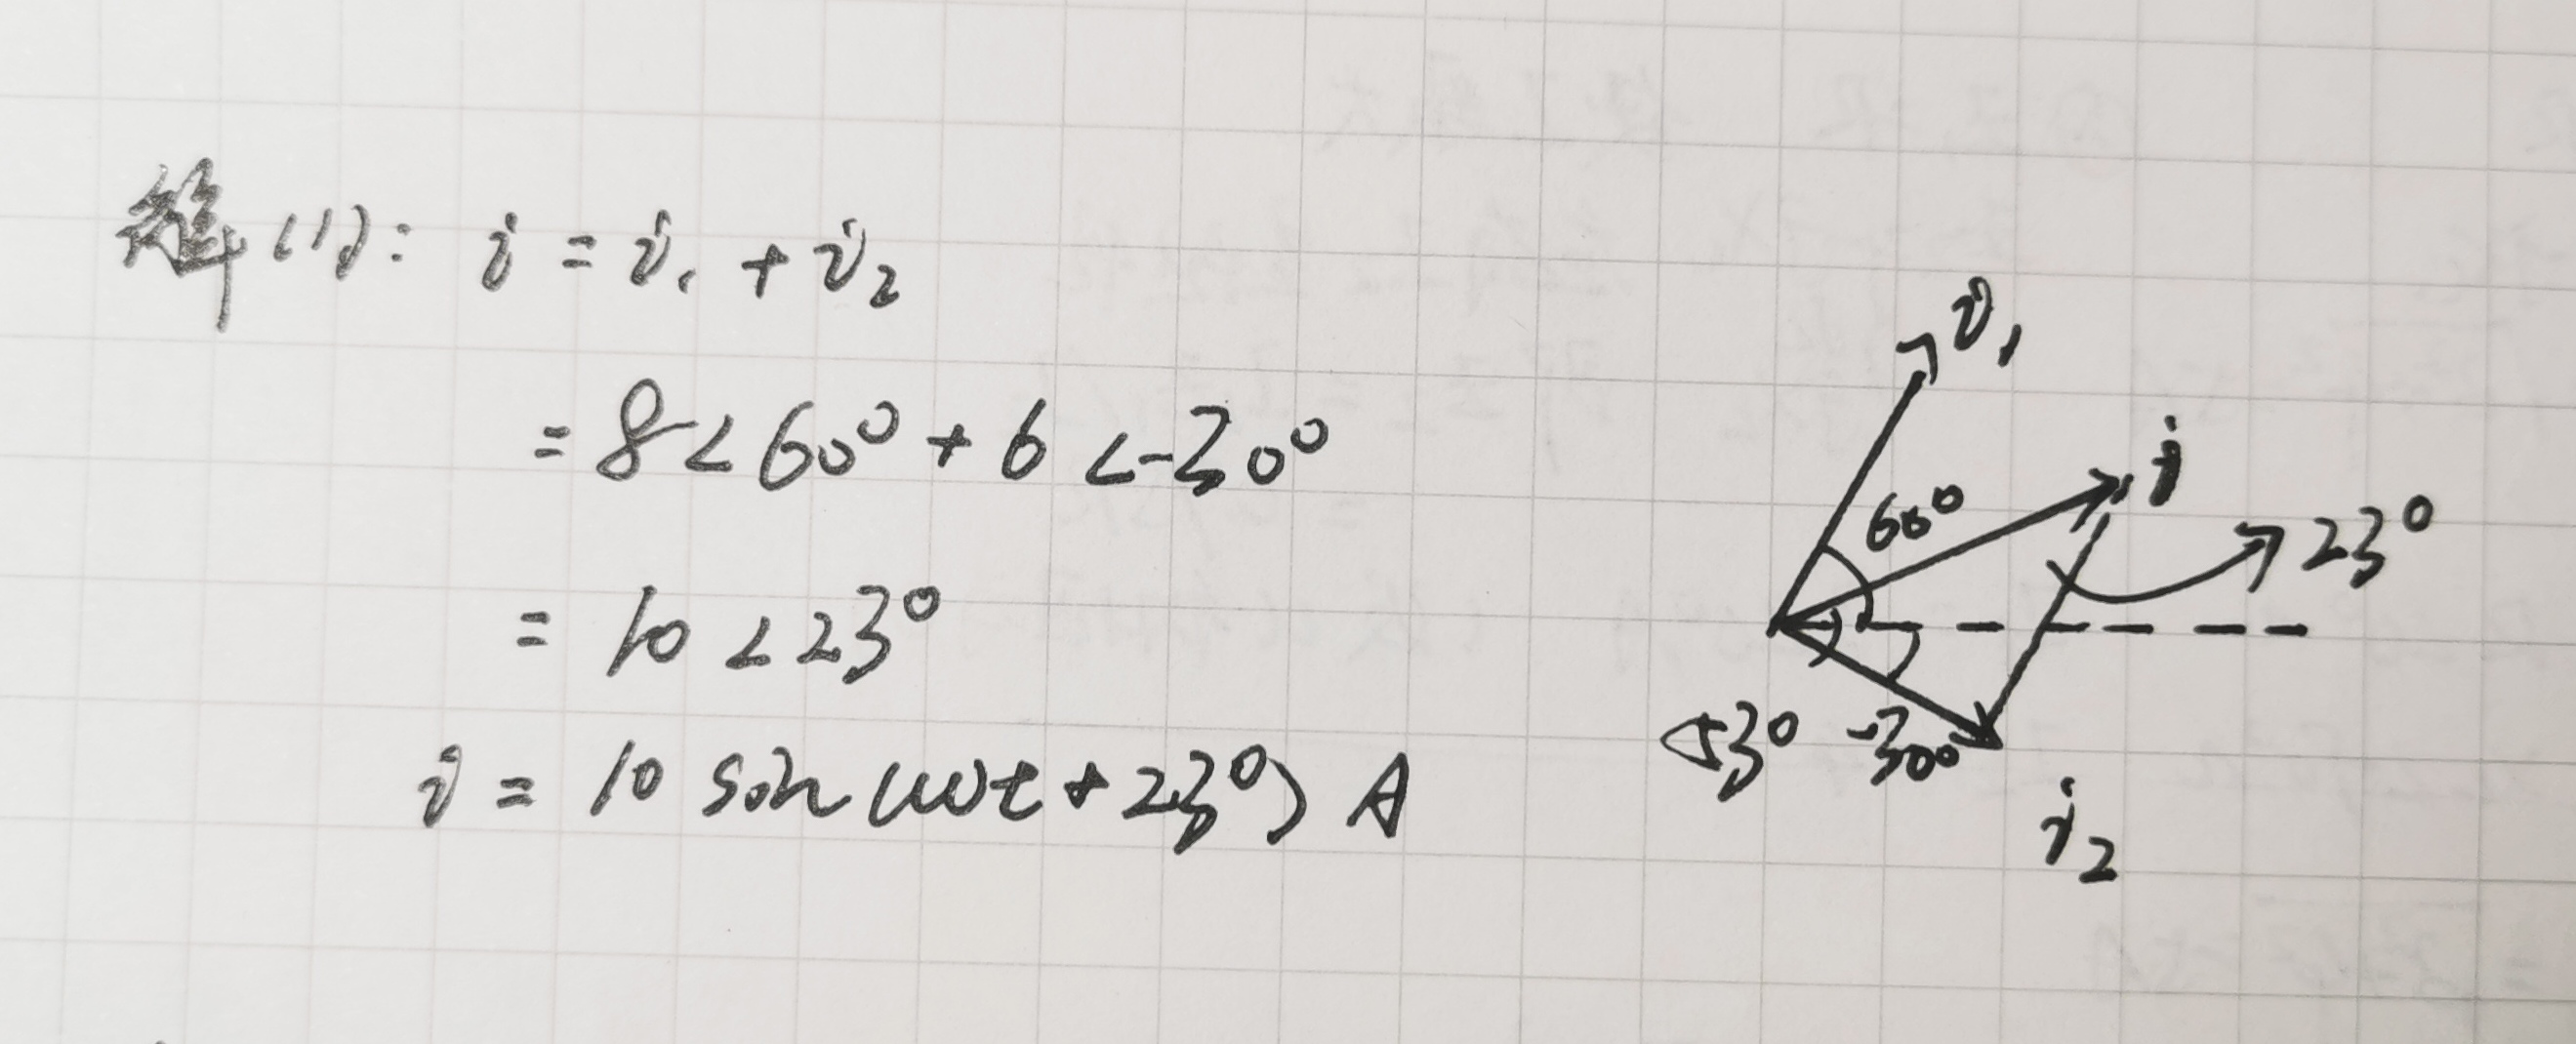 解(1): i = i₁ + i₂
= 8∠60° + 6∠-30°
= 10∠23°
i = 10 sin(ωt + 23°) A
i₁
i
60°
23°
53°
-30°
i₂